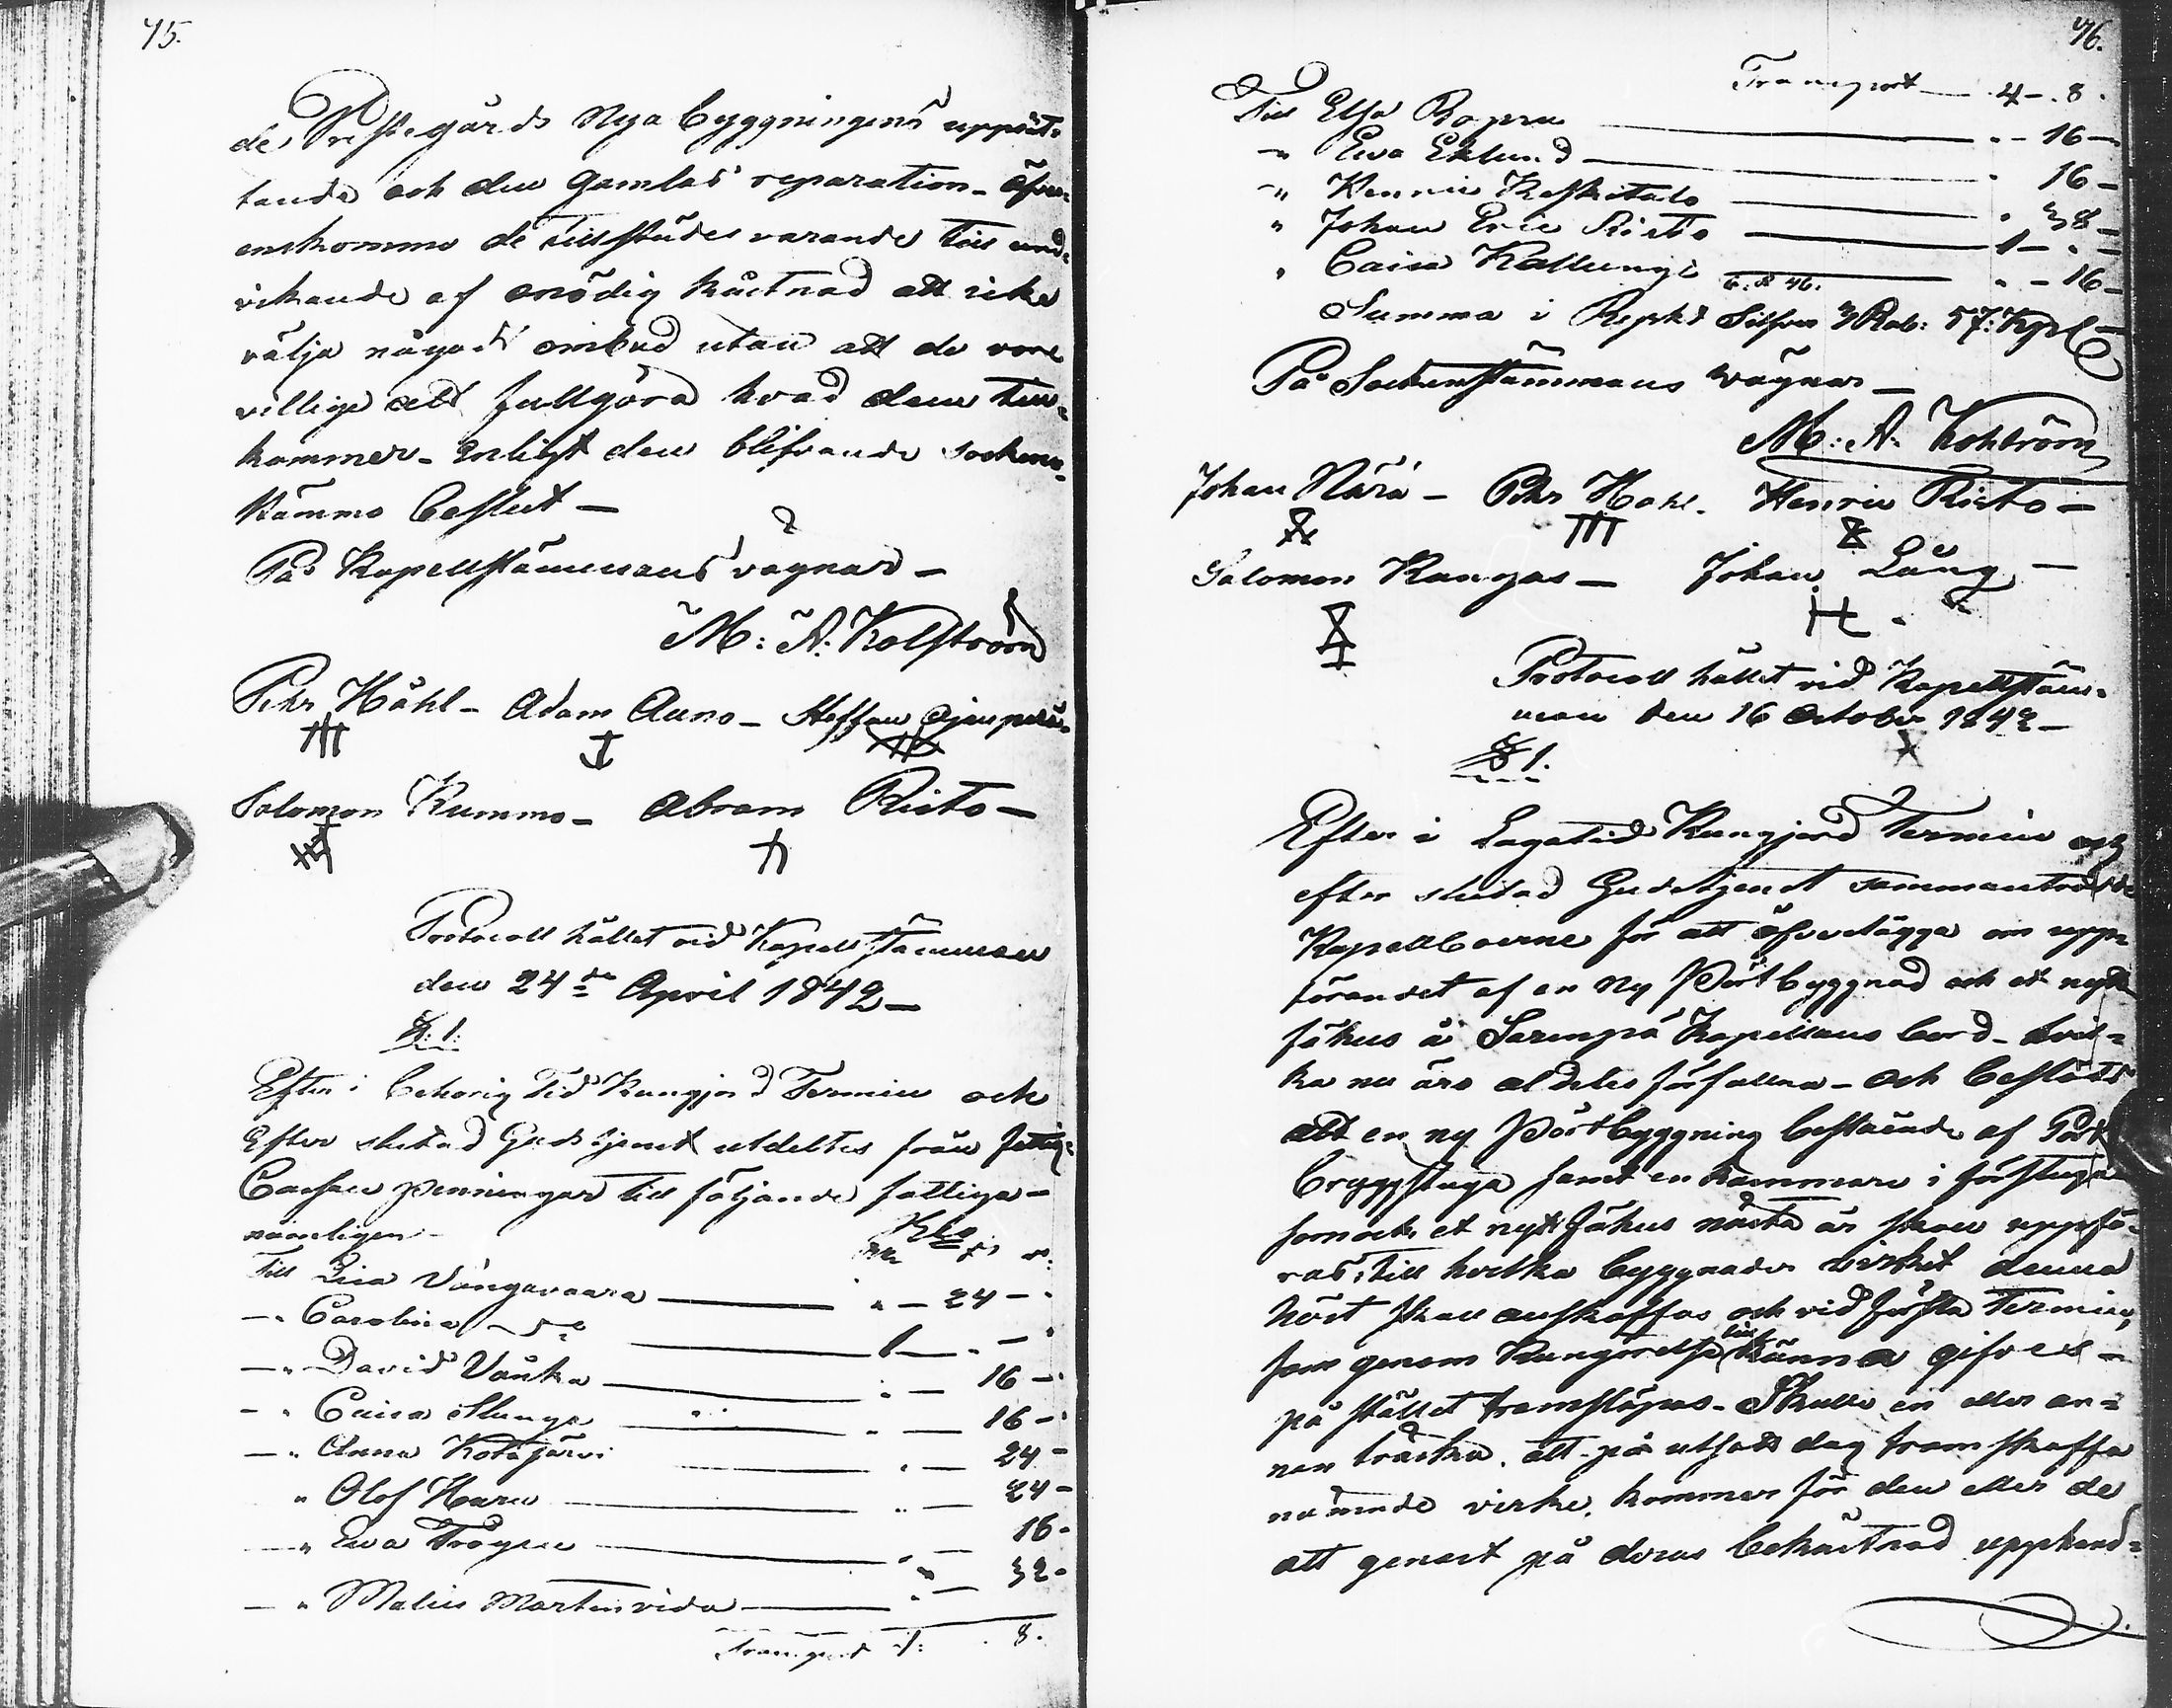 45.
de Prestegårds Nya byggningens upprät-
tande och den gamlas reparation - öfver-
enskommo de tillstädes varande till und-
vikande af onödig kåstnad att icke
välja något ombud utan att de vore
villige att fullgöra hvad dem till-
kommer - enligt den blifvande socken-
stämmo beslut -
På Kapellstämmans vägnar -
M: A: Kolström
Pehr Håhl - Adam Auno - Steffan
Solomon Kummo - Abram Risto -
Protocoll hållet vid Kapellstämman
den 24de April 1842 -
§: 1:
Efter i behörig tid Kungjord Termin och
Efter slutad Gudstjenst utdeltes från fattig-
Cassan penningar till följande fattiga -
nämligen -
Till Lisa Vängavaara — " — 24 -
— " Carolina — 1 — " -
— " David Vänka — " — 16 -
— " Caisa — " — 16 -
— " Anna Kotajärvi — " — 24 -
" Olof Haru — " — 24 -
— " Ewa — " — 16 -
— " Malin Martinvida — " — 32 -
Transport 4: 8.
46.
Transport — 4 - 8.
Till Elsa — " - 16 -
— " Ewa Eklund — " 16 -
— " Henric — " 38 -
" Johan Eric Risto — 1 - " -
" Caisa Kallungi — " - 16 -
Summa i Silfver Rub: 57: Kop
På Sockenstämmans vägnar -
M: A: Kohlström
Johan Närä - Pehr Hahl. Henric Risto -
Salomon Kangas - Johan Lång -
Protocoll hållet vid Kapellstäm-
man den 16 October 1842 -
§ 1.
Efter i Lagatid Kungjord Termin och
efter slutad Gudstjenst sammanträdde
Kapellboerne för att öfverlägga om upp-
förandet af en Ny Pörtbyggnad och et nytt
fähus å Kapellans bord - hvil-
ka nu äro aldeles förfallna - och beslöts
att en ny Pörtbyggning bestående af Pört
bryggstuga samt en kammare i förstugan
som ock et nytt fähus nästa år skall uppfö-
ras, till hvilka byggnader virket denna
höst skall anskaffas och vid första Termin,
som genom Kungörelse till känna gifves -
på stället framsläpas - Skulle en eller an-
nan tråska att på utsatt dag framskaffa
nämnde virke, kommer för den eller de
att genast på deras bekåstnad upphand-